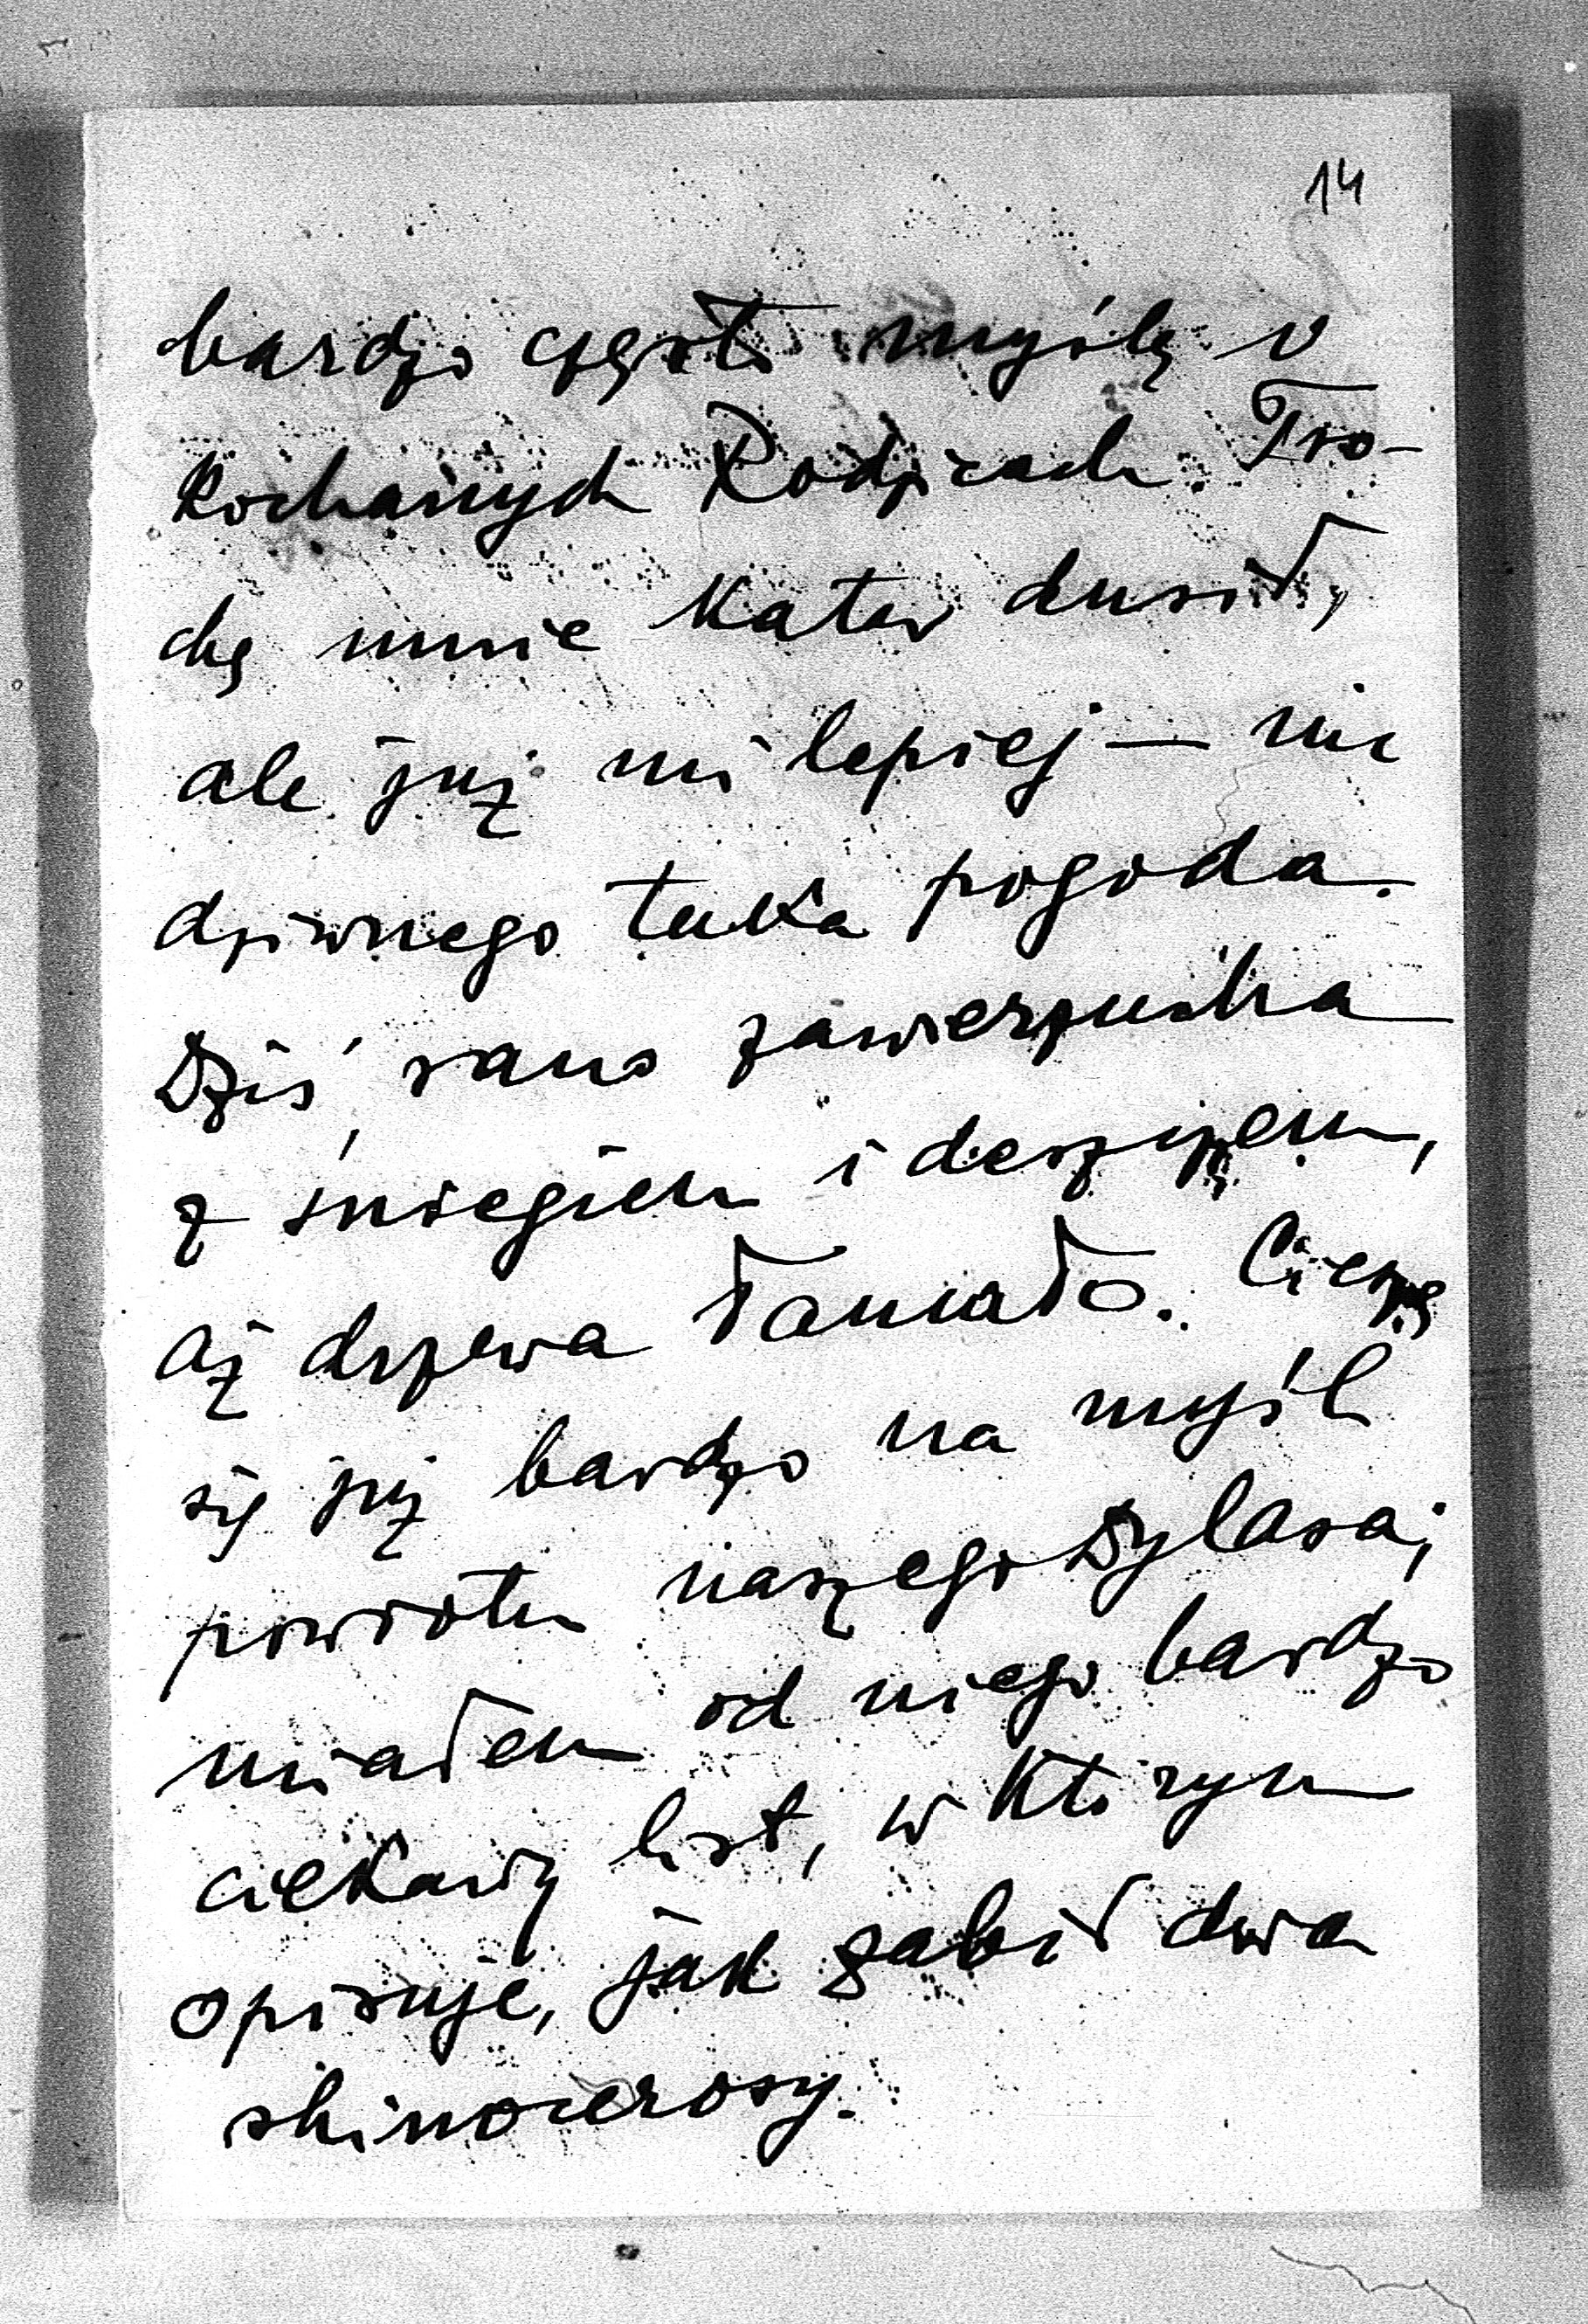 14
bardzo często myślę o
Kochanych Rodzicach. Tro-
chę mnie katar dusił,
ale już mi lepiej — nic
dziwnego taka pogoda.
Dziś rano zawierzucha
z śniegiem i deszczem,
aż drzewa łamało. Cieszę
się już bardzo na myśl
powrotu naszego Dylasa;
miałem od niego bardzo
ciekawy list, w którym
opisuje, jak zabił dwa
rhinocerosy.